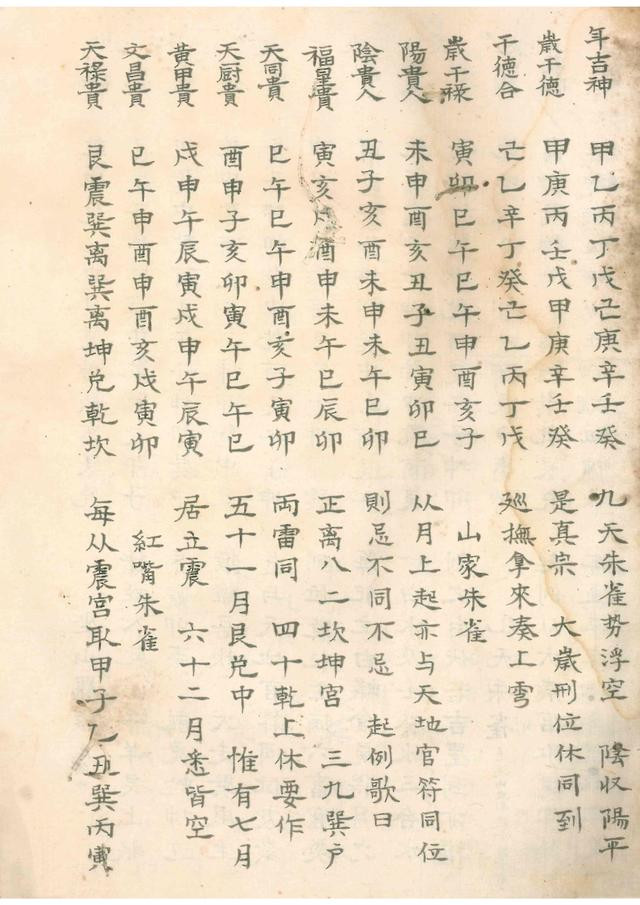 年吉神 甲乙丙丁戊己庚辛壬癸 九天朱雀势浮空 陰収陽平
歲干德 甲庚丙壬戊甲庚辛壬癸 是真宗 大歲刑位休同到
干德合 己乙辛丁癸己乙丙丁戊 廵撫拿來奏上穹
歲干禄 寅卯巳午巳午申酉亥子 山家朱雀
陽貴人 未申酉亥丑子丑寅卯巳 从月上起亦与天地官符同位
陰貴人 丑子亥酉未申未午巳卯 則忌不同不忌 起例歌曰
福星貴 寅亥戌酉申未午巳辰卯 正离八二坎坤宮 三九巽户
天同貴 巳午巳午申酉亥子寅卯 両雷同 四十乾上休要作
天厨貴 酉申子亥卯寅午巳午巳 五十一月艮兑中 惟有七月
黄甲貴 戌申午辰寅戌申午辰寅 居立震 六十二月悉皆空
文昌貴 巳午申酉申酉亥戌寅卯 紅嘴朱雀
天禄貴 艮震巽离巽离坤兑乾坎 每从震宮取甲子乙丑巽丙寅